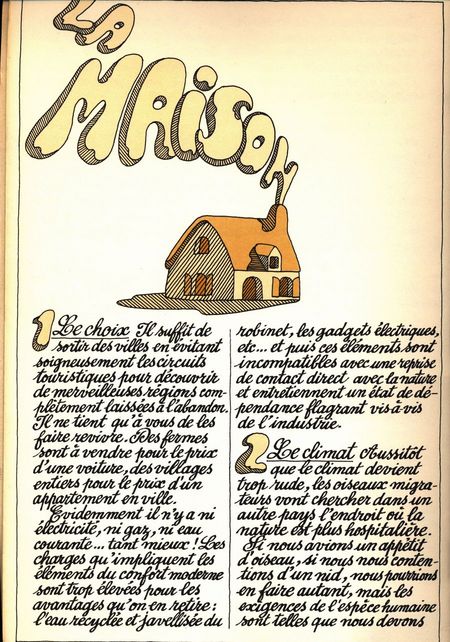 LA
MAISON
1 Le choix Il suffit de
sortir des villes en évitant
soigneusement les circuits
touristiques pour découvrir
de merveilleuses régions com-
plètement laissées à l'abandon.
Il ne tient qu'à vous de les
faire revivre. Des fermes
sont à vendre pour le prix
d'une voiture, des villages
entiers pour le prix d'un
appartement en ville.
Evidemment il n'y a ni
électricité, ni gaz, ni eau
courante... tant mieux! Les
charges qu'impliquent les
éléments du confort moderne
sont trop élevées pour les
avantages qu'on en retire:
l'eau recyclée et javellisée du
robinet, les gadgets électriques,
etc... et puis ces éléments sont
incompatibles avec une reprise
de contact direct avec la nature
et entretiennent un état de dé-
pendance flagrant vis à vis
de l'industrie.
2 Le climat Aussitôt
que le climat devient
trop rude, les oiseaux migra-
teurs vont chercher dans un
autre pays l'endroit où la
nature est plus hospitalière.
Si nous avions un appétit
d'oiseau, si nous nous conten-
tions d'un nid, nous pourrions
en faire autant, mais les
exigences de l'espèce humaine
sont telles que nous devons